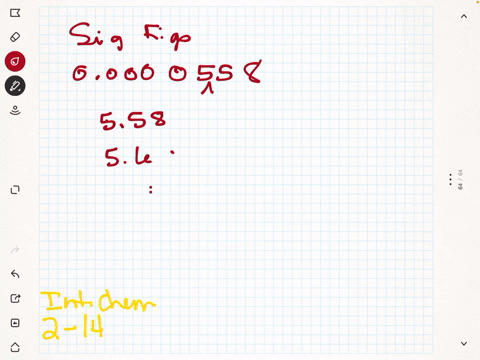 Sig Figs
0.000 0 558
5.58
5.6
Int. Chem
2-14
64 / 64